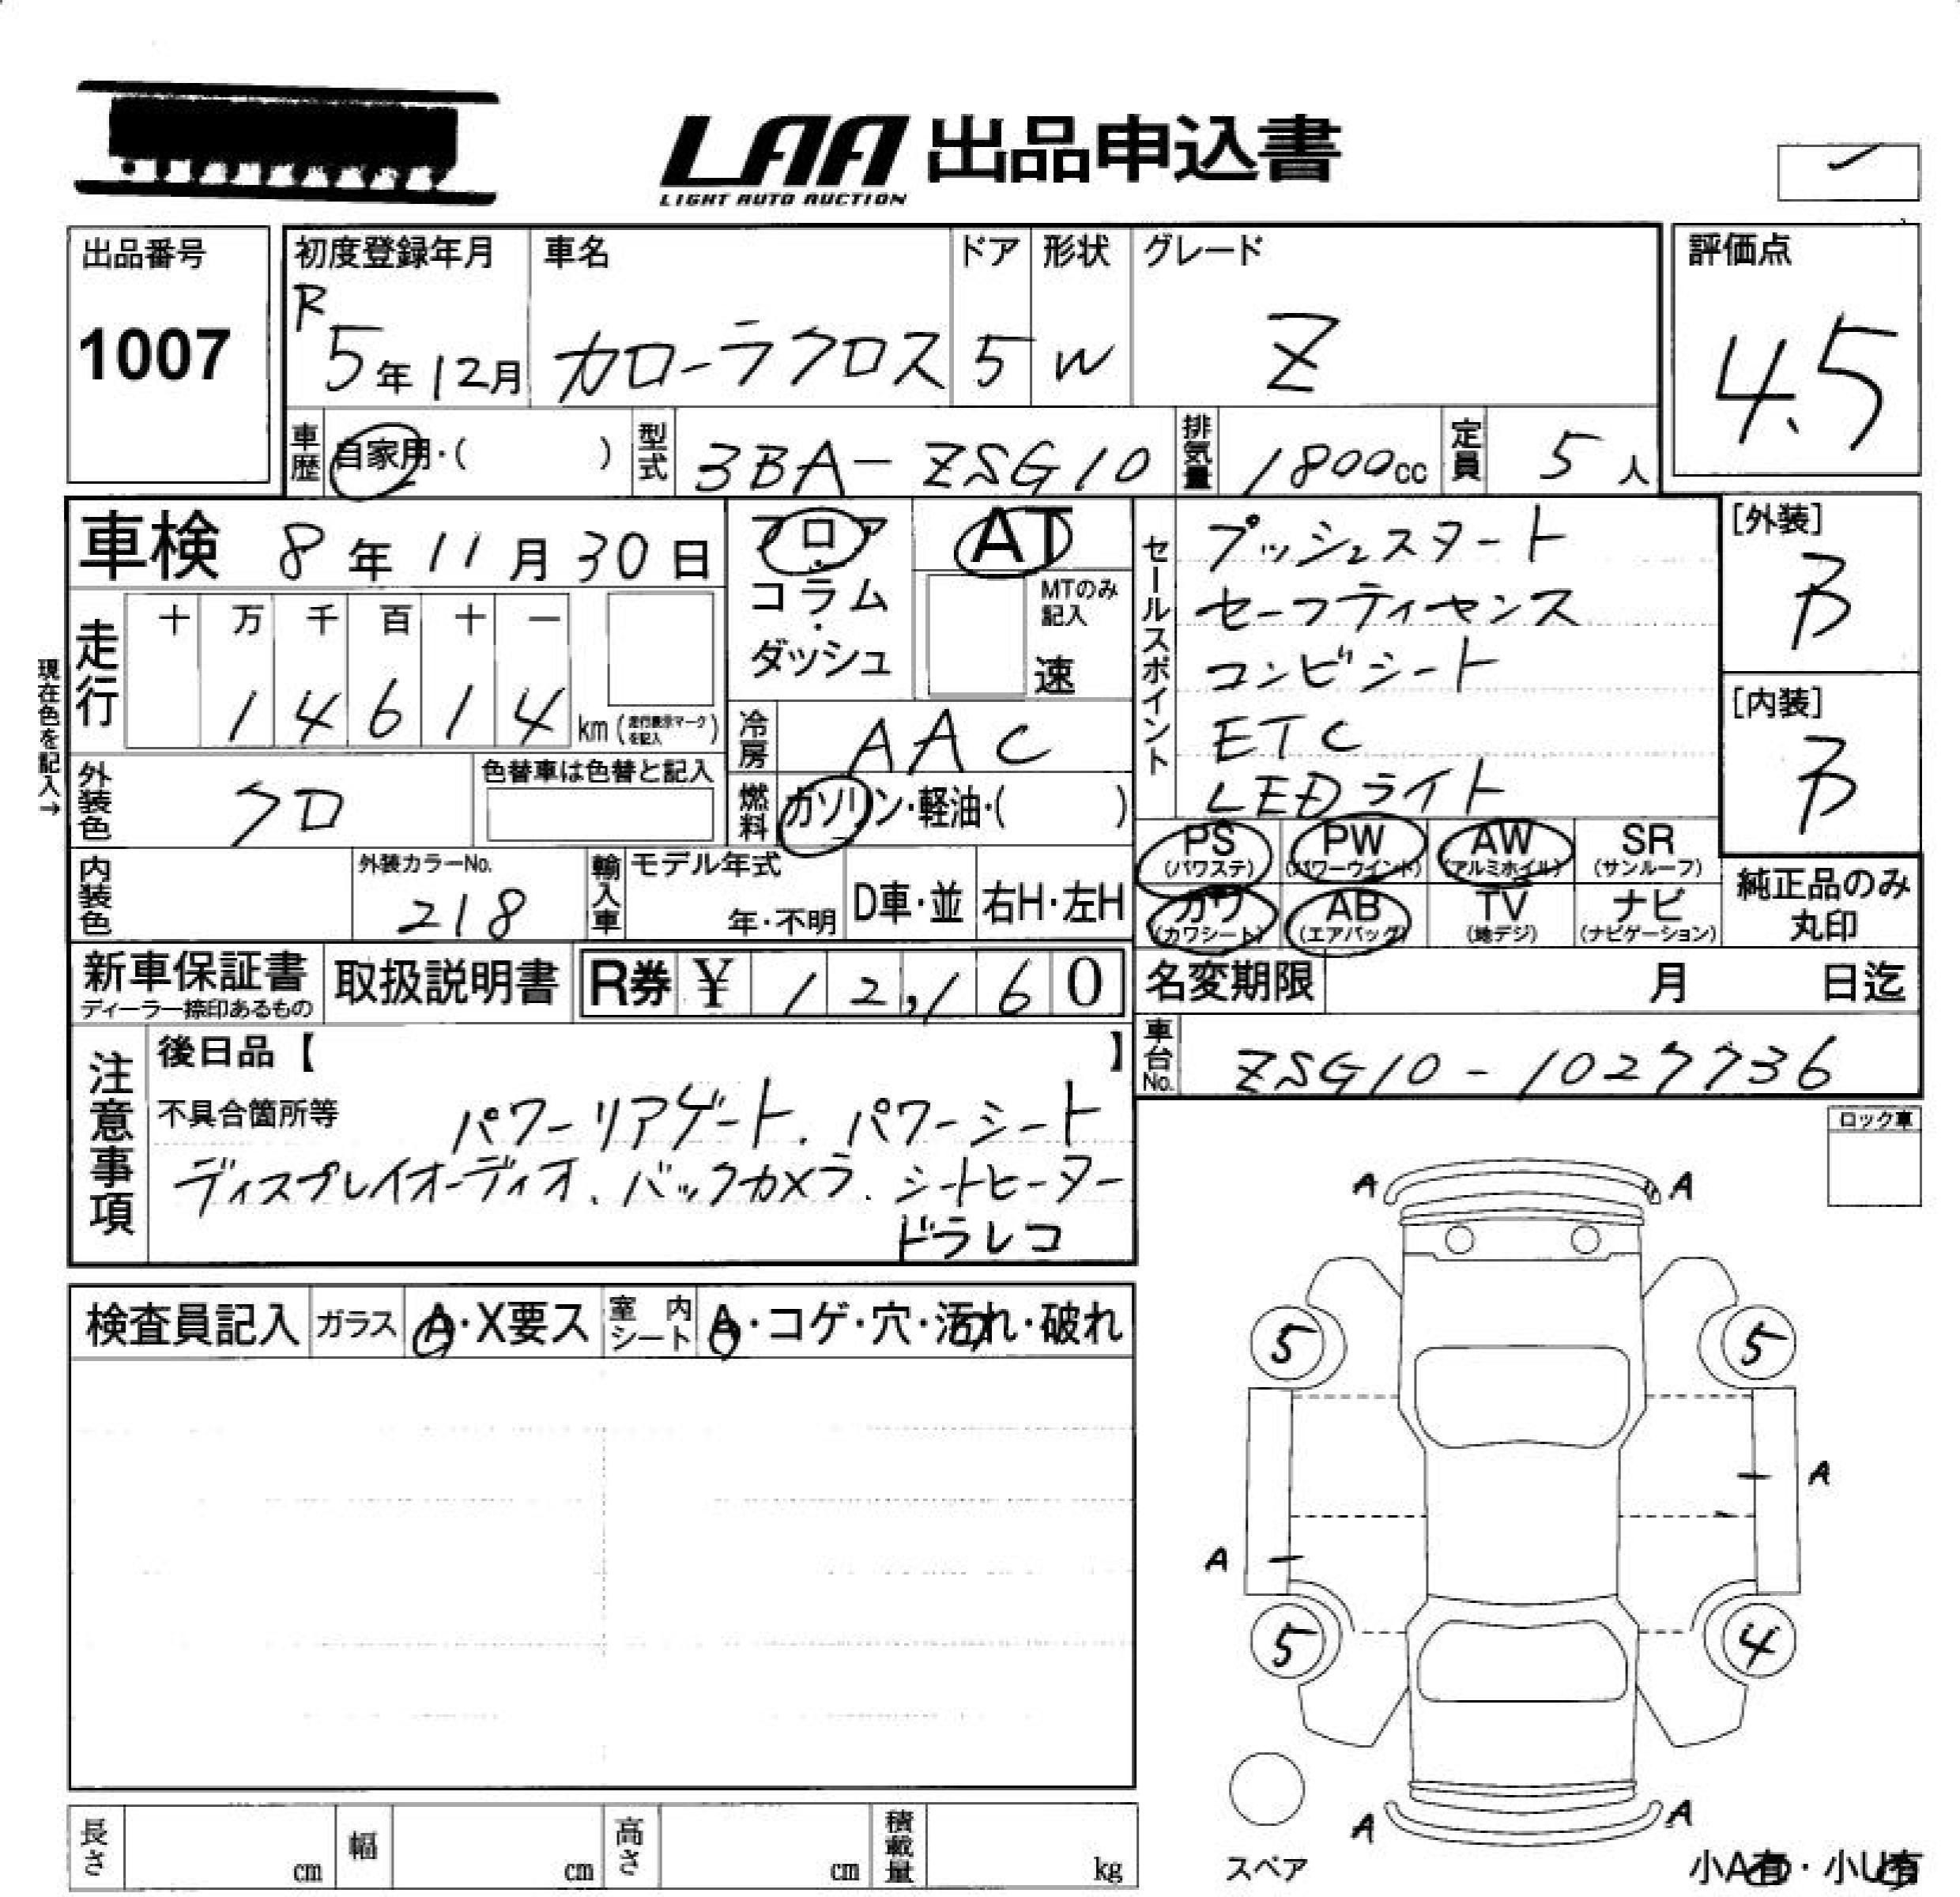 LAA 出品申込書
LIGHT AUTO AUCTION
出品番号
1007
初度登録年月
R
5年12月
車名
カローラクロス
ドア
5
形状
W
グレード
Z
評価点
4.5
車歴
自家用・( )
型式
3BA-ZSG10
排気量
1800cc
定員
5人
車検 8年11月30日
現在色を記入→
走行
十 万 千 百 十 一
1 4 6 1 4 km (走行表示マークを記入)
フロア
・
コラム
・
ダッシュ
AT
MTのみ
記入
速
冷房
AAC
燃料
ガソリン・軽油・( )
セールスポイント
プッシュスタート
セーフティセンス
コンビシート
ETC
LEDライト
[外装]
B
[内装]
B
外装色
クロ
色替車は色替と記入
内装色
外装カラーNo.
218
輸入車
モデル年式
年・不明
D車・並
右H・左H
PS
(パワステ)
PW
(パワーウインド)
AW
(アルミホイル)
SR
(サンルーフ)
カワ
(カワシート)
AB
(エアバッグ)
TV
(地デジ)
ナビ
(ナビゲーション)
純正品のみ
丸印
新車保証書
ディーラー捺印あるもの
取扱説明書
R券 ¥ 12,160
名変期限 月 日迄
車台No.
ZSG10-1027736
注意事項
後日品【 】
不具合箇所等
パワーリアゲート、パワーシート
ディスプレイオーディオ、バックカメラ、シートヒーター
ドラレコ
ロック車
検査員記入
ガラス
A・X要ス
室内
シート
A・コゲ・穴・汚れ・破れ
A A
5 5
A
A
5 4
A A
スペア
小A有・小U有
長さ cm
幅 cm
高さ cm
積載量 kg